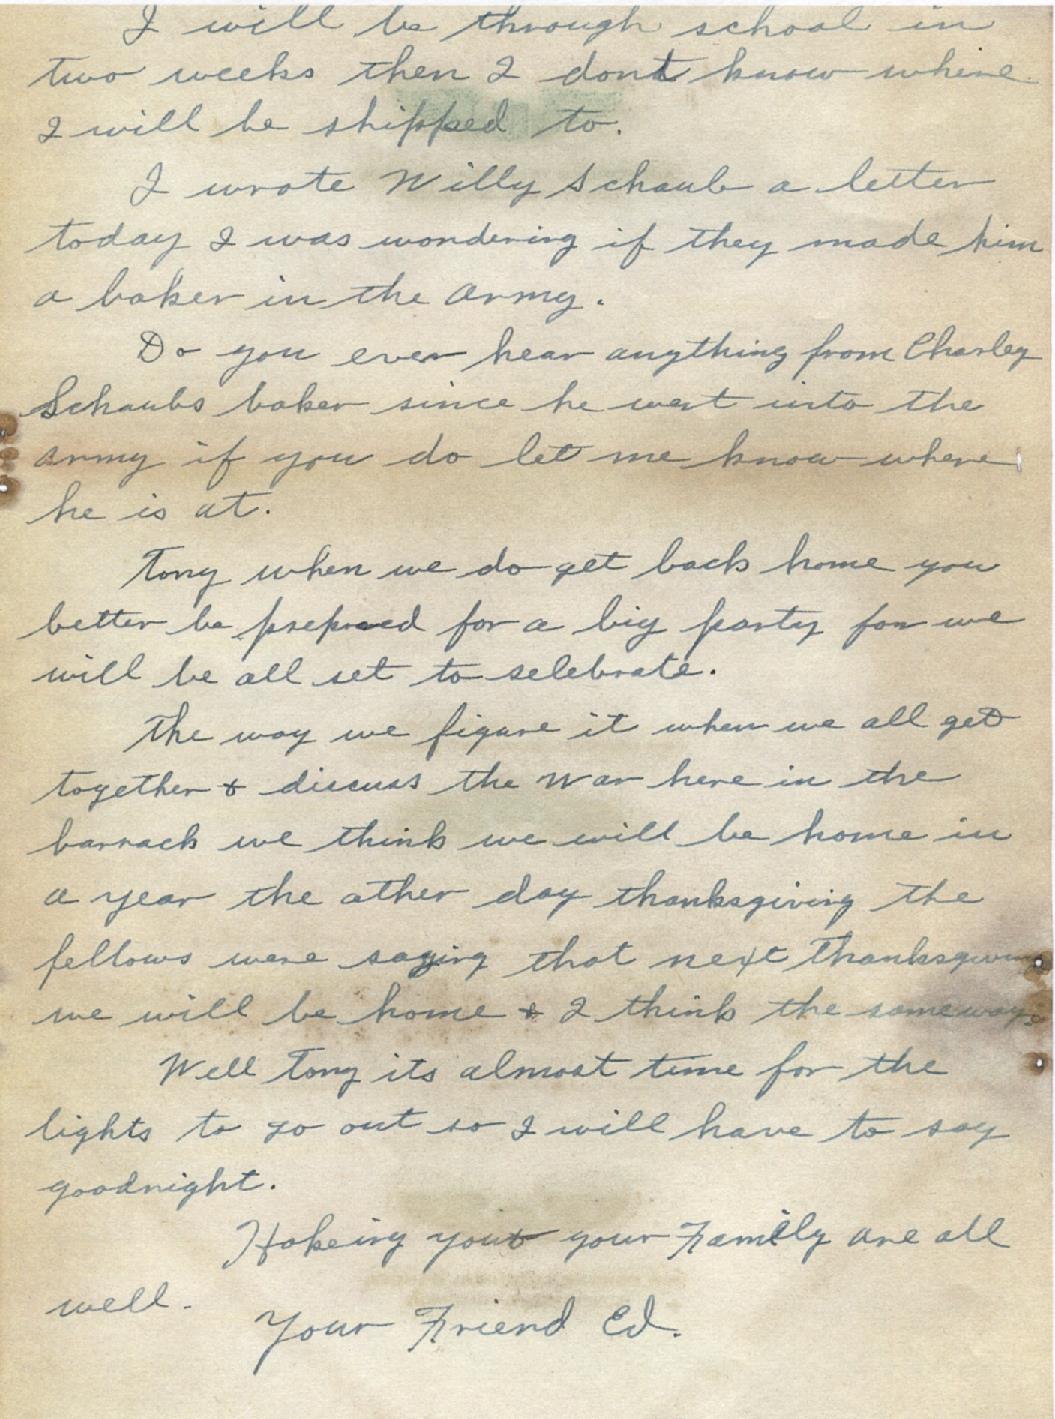 I will be through school in
two weeks then I dont know where
I will be shipped to.
I wrote Willy Schaub a letter
today I was wondering if they made him
a baker in the army.
Do you ever hear anything from Charley
Schaubs baker since he went into the
army if you do let me know where
he is at.
Tony when we do get back home you
better be prepared for a big party for we
will be all set to selebrate.
The way we figure it when we all get
together & discuss the war here in the
barrack we think we will be home in
a year the other day thanksgiving the
fellows were saying that next Thanksgiving
we will be home & I think the sameway.
Well Tony its almost time for the
lights to go out so I will have to say
goodnight.
Hopeing you & your Family are all
well.
Your Friend Ed.